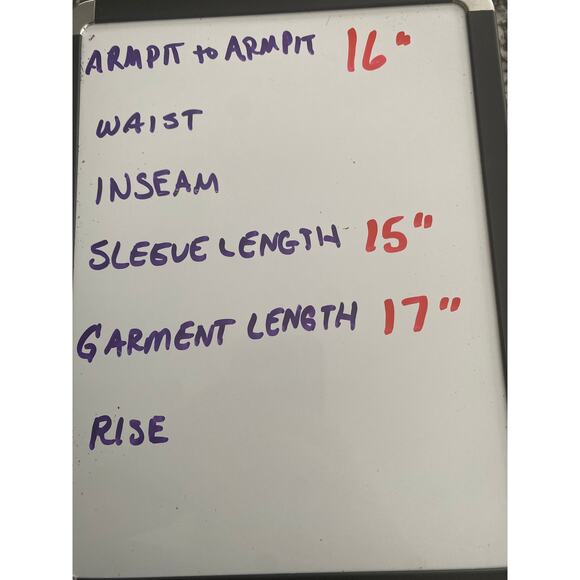 ARMPIT to ARMPIT 16"
WAIST
INSEAM
SLEEVE LENGTH 15"
GARMENT LENGTH 17"
RISE